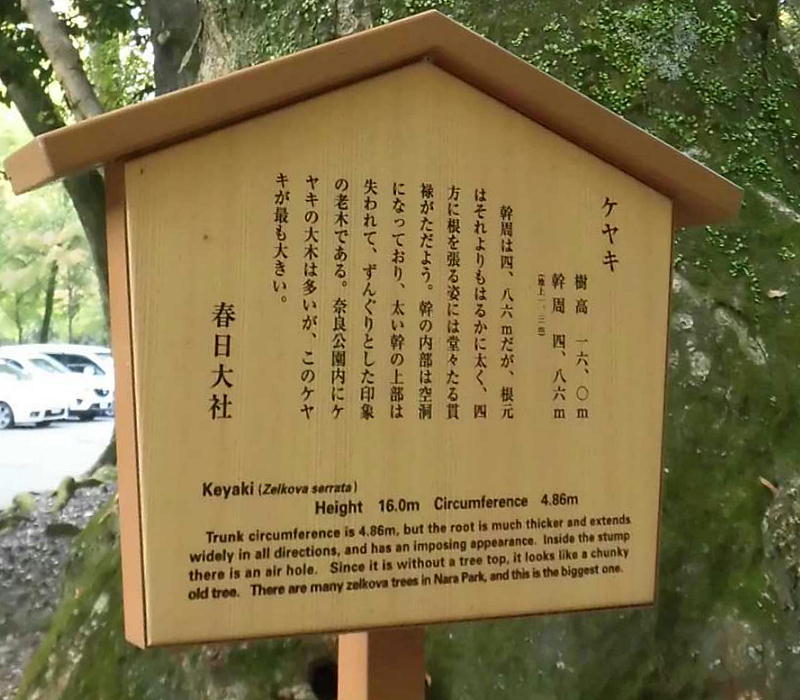 ケヤキ
樹高 一六、〇m
幹周 四、八六m
幹周は四、八六mだが、根元
はそれよりもはるかに太く、四
方に根を張る姿には堂々たる貫
禄がただよう。幹の内部は空洞
になっており、太い幹の上部は
失われて、ずんぐりとした印象
の老木である。奈良公園内にケ
ヤキの大木は多いが、このケヤ
キが最も大きい。
春日大社
Keyaki (Zelkova serrata)
Height 16.0m Circumference 4.86m
Trunk circumference is 4.86m, but the root is much thicker and extends
widely in all directions, and has an imposing appearance. Inside the stump
there is an air hole. Since it is without a tree top, it looks like a chunky
old tree. There are many zelkova trees in Nara Park, and this is the biggest one.